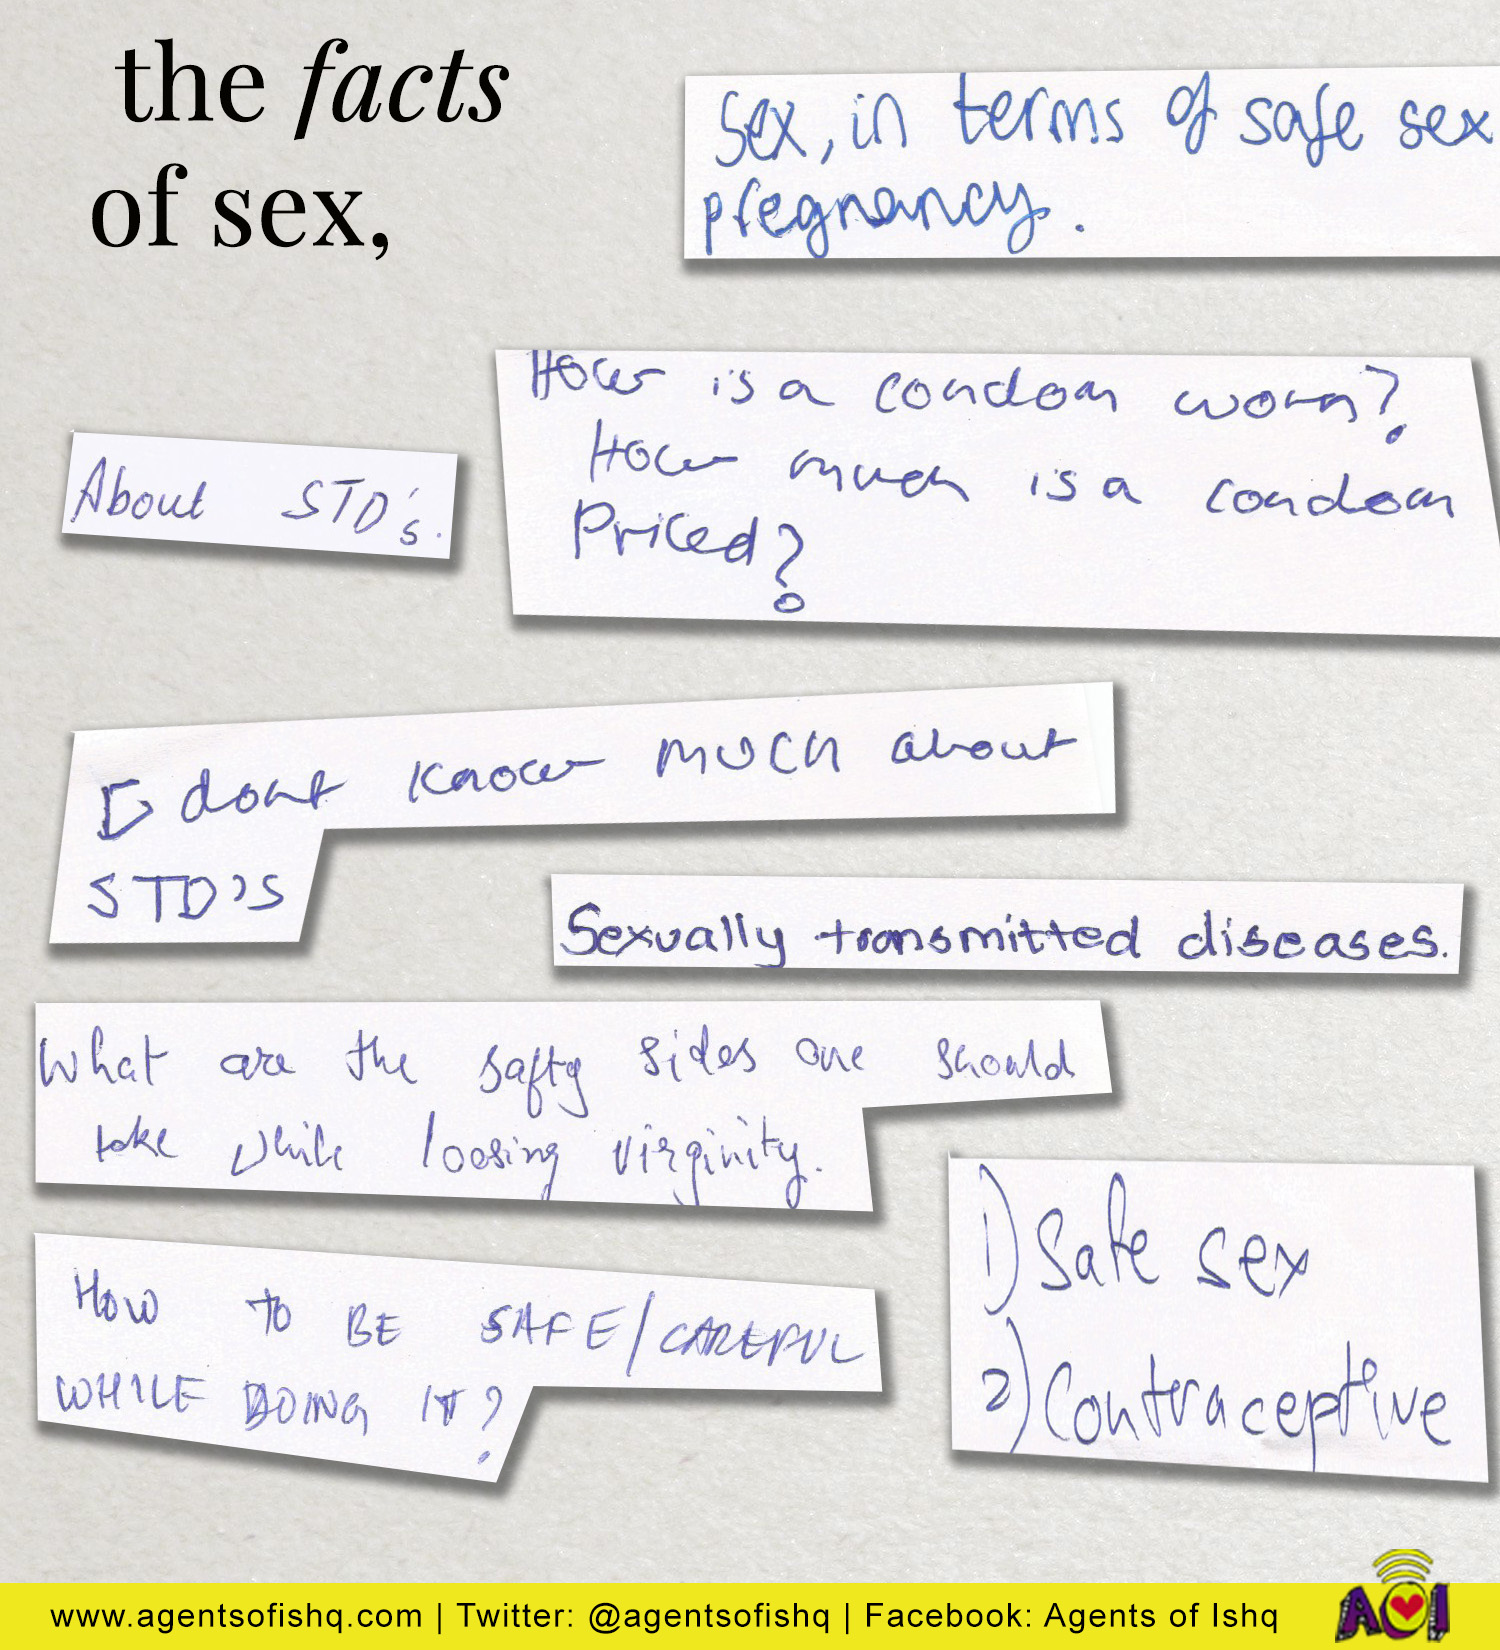 the facts
of sex,
Sex, in terms of safe sex
pregnancy.
How is a condom worn?
How much is a condom
Priced?
About STD's.
I dont know much about
STD'S
Sexually transmitted diseases.
What are the safty sides one should
take while loosing virginity.
1) Safe sex
2) Contraceptive
HOW TO BE SAFE/CAREFUL
WHILE DOING IT?
www.agentsofishq.com | Twitter: @agentsofishq | Facebook: Agents of Ishq
AOI